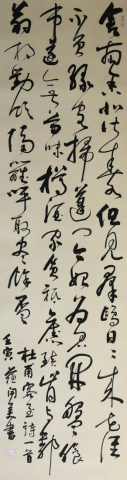 舍南舍北皆春水但見群鷗日日來花徑
不曾緣客掃蓬門今始為君開盤飧
市遠無兼味樽酒家貧秖舊醅肯與鄰
翁相對飲隔籬呼取盡餘杯
杜甫客至詩一首
壬寅
書